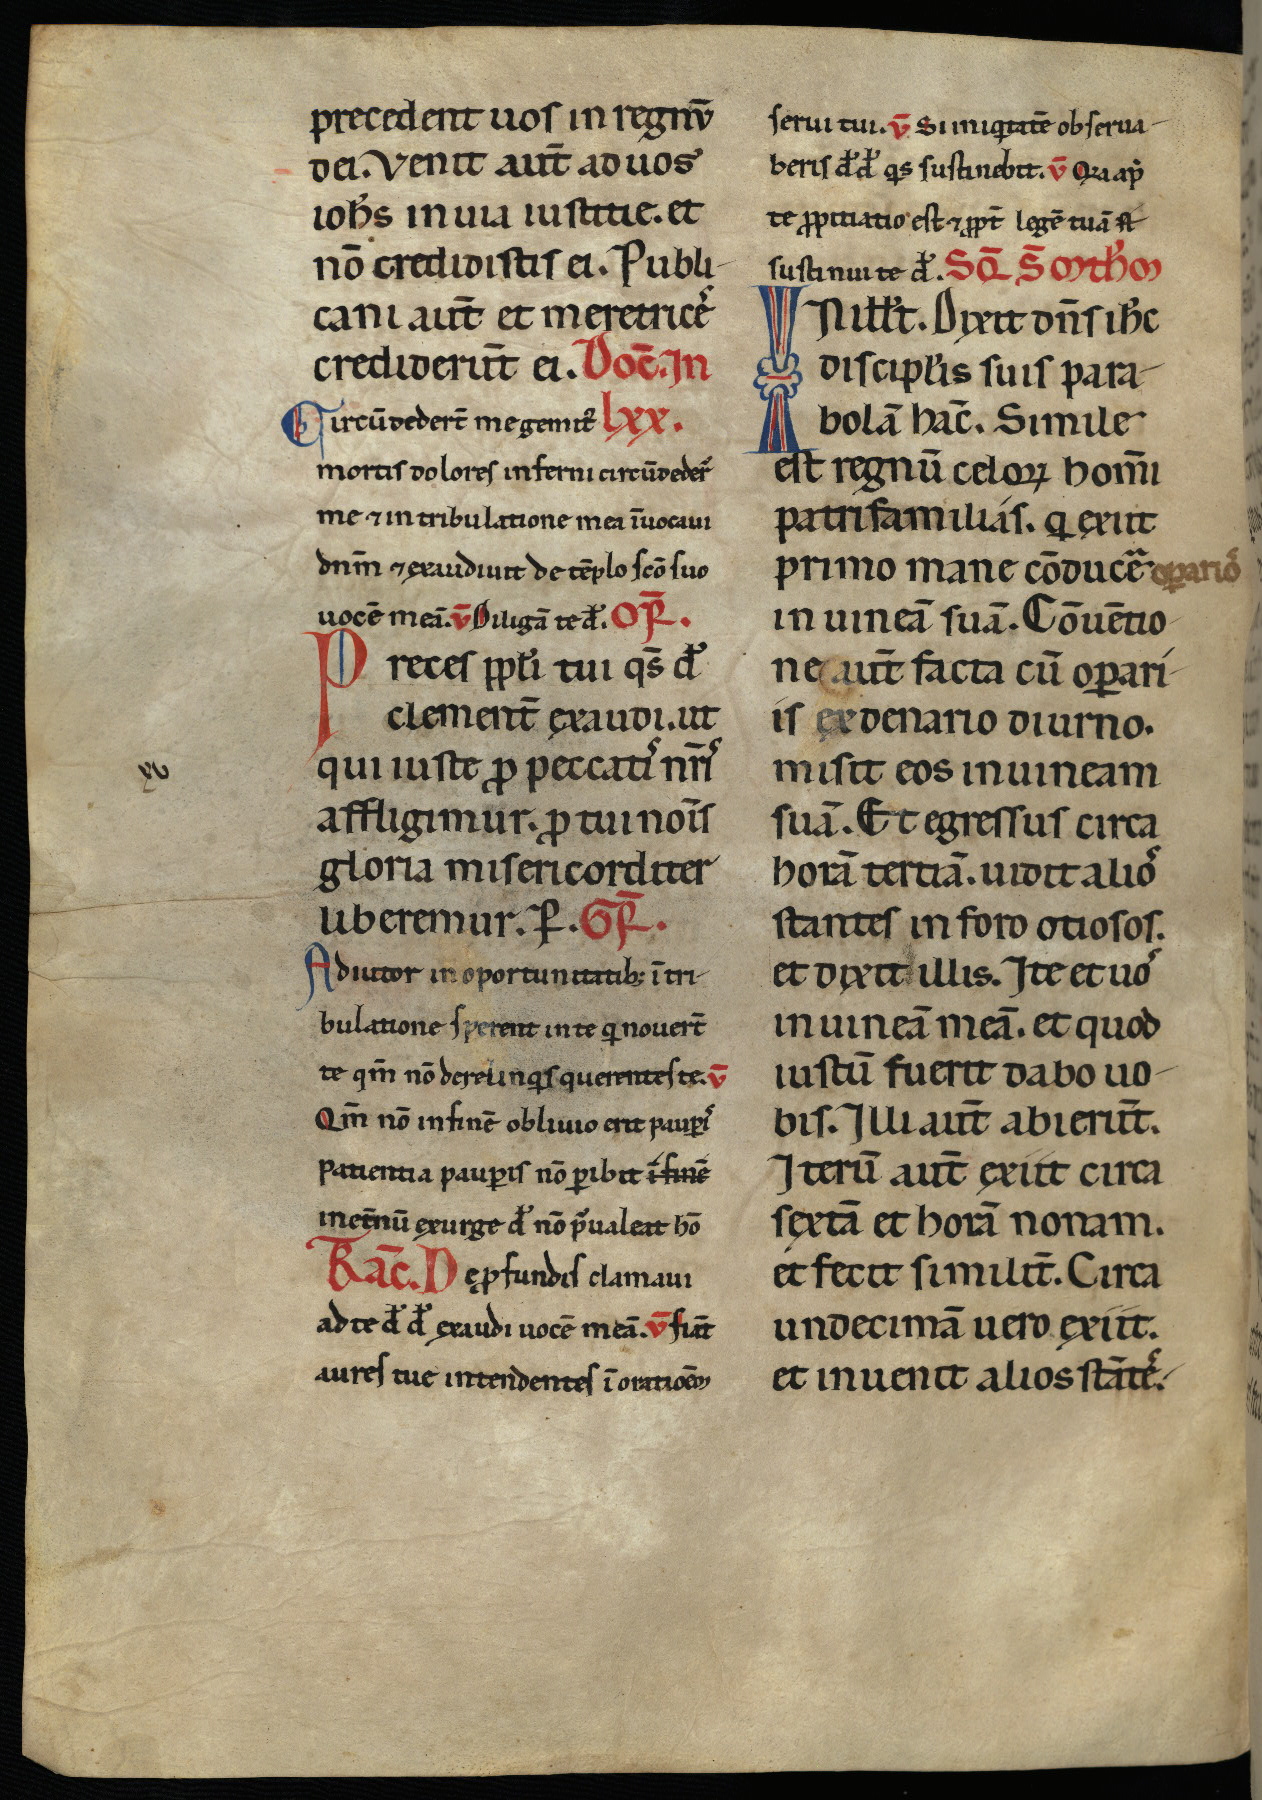 precedent uos in regnū
dei. Venit aut̄ ad uos
ioh̄s in uia iustitie. et
nō credidistis ei. Publi-
cani aut̄ et meretrices
crediderūt ei. Doc̄. In
Circūdedert̄ me gemit᷒ lxx.
mortis dolores inferni circūdeder̄
me ⁊ in tribulatione mea īuocaui
dnm̄ ⁊ exaudiuit de tēplo scō suo
uocē meā. v̄ Diligā te d̄. Or̄.
Preces ppl̄i tui qs̄ d̄
clement̄ exaudi. ut
qui iuste ꝓ peccatis nr̄is
affligimur. ꝓ tui noīs
gloria misericorditer
liberemur. P̄. Gr̄.
Adiutor in oportunitatib; ī tri-
bulatione sperent in te q̄ nouert̄
te qm̄ nō derelinq̄s querentes te. v̄
Qm̄ nō in finē obliuio erit paup̄is
patientia paup̄is nō p̄ibit ī finē
in et̄nū exurge d̄ nō p̄ualeat hō
Trac̄. De ꝓfundis clamaui
ad te d̄ d̄ exaudi uocē meā. v̄ fiāt
aures tue intendentes ī orationē
serui tui. v̄ Si iniq̄tatē obserua-
beris d̄ d̄ q̄s sustinebit. v̄ Qia ap̄
te ꝓpitiatio est ⁊ ꝓpt̄ legē tuā
sustinui te d̄. Sc̄d̄ S̄ Mth̄m
IN illt̄. Dixit dn̄s ih̄c
discipl̄is suis para-
bolā hāc. Simile
est regnū celoꝝ homī
patrifamilias. q̄ exiit
primo mane cōducē op̄arios
in uineā suā. Cōuētio-
ne aut̄ facta cū op̄ari-
is ex denario diurno.
misit eos in uineam
suā. Et egressus circa
horā tertiā. uidit alios
stantes in foro otiosos.
et dixit illis. Ite et uos
in uineā meā. et quod
iustū fuerit dabo uo-
bis. Illi aut̄ abierūt.
Iterū aut̄ exiit circa
sextā et horā nonam.
et fecit similit̄. Circa
undecimā uero exiit.
et inuenit alios stātes.